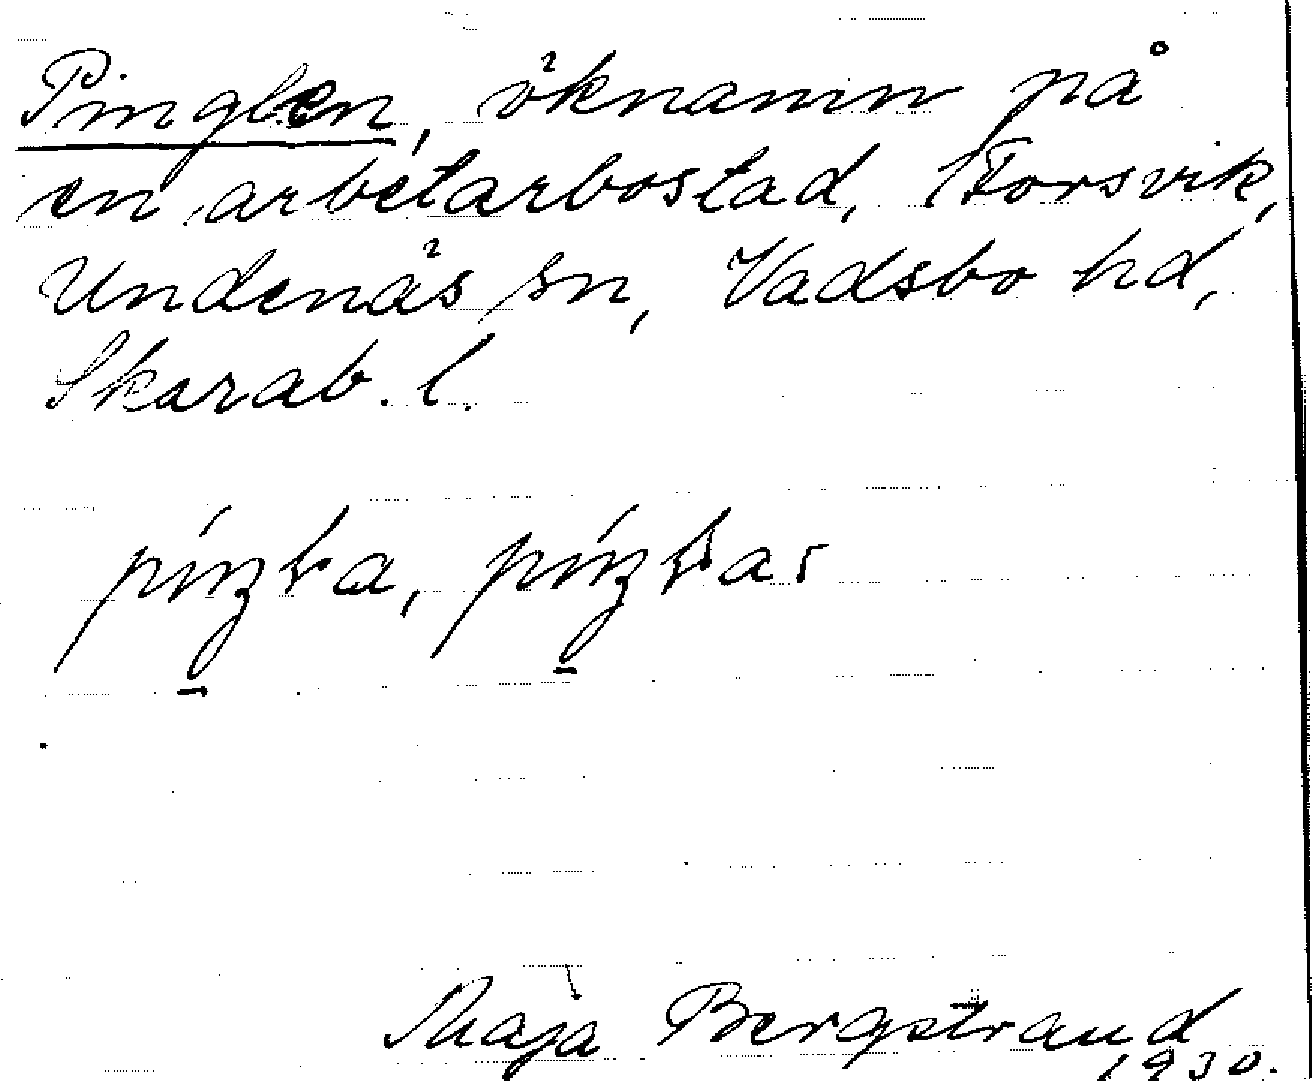 Pinglen, öknamn på
en arbetarbostad, Forsvik,
Undenäs sn, Vadsbo hd,
Skarab. l.
Maja Bergstrand
1930.